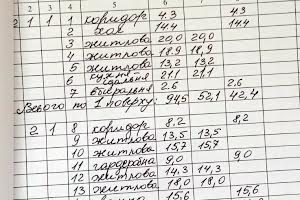 2 3 4 5 6 7 8
2 1 1 1 коридор 4.3 4.3
2 хол 14.4 14.4
3 житлова 20,0 20,0
4 житлова 18,9 18,9
5 житлова 13,2 13,2
6 кухня їдальня 21,1 21,1
7 вбиральня 2.6 2.6
Всього по 1 поверху: 94,5 52,1 42,4
2 1 8 коридор 8,2 8,2
9 житлова 13,5 13,5
10 житлова 15,7 15,7
11 гардеробна 9,0 9,0
12 житлова 14,3 14,3
13 житлова 18,0 18,0
15,6 15,6